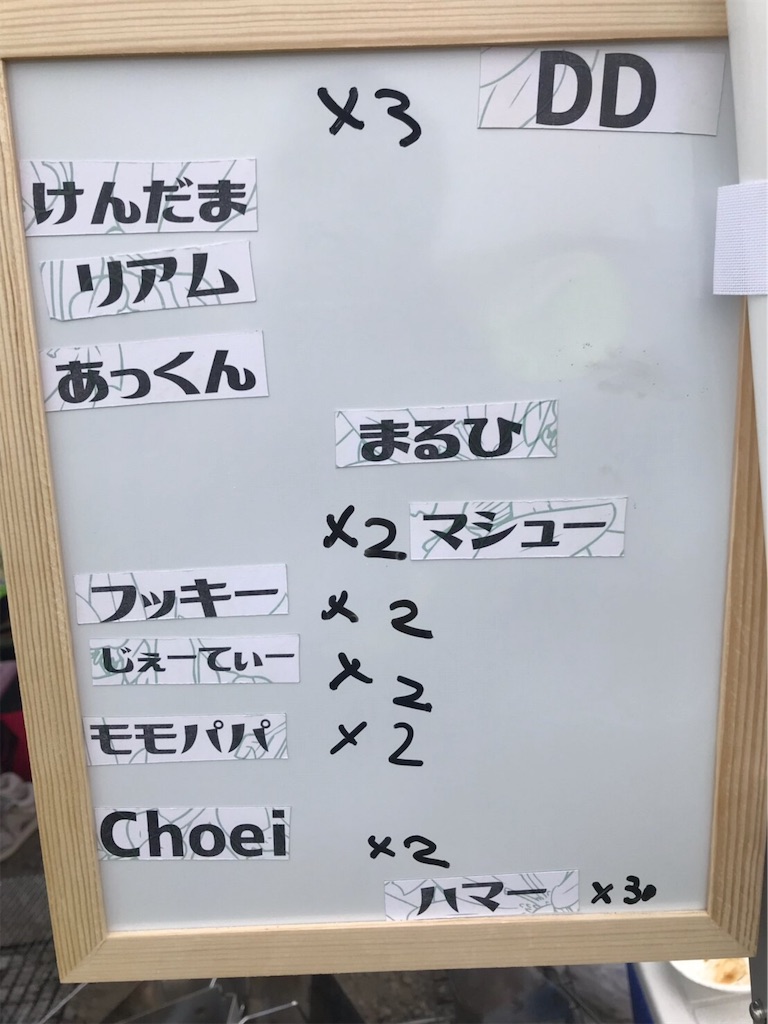 ×3 DD
けんだま
リアム
あっくん
まるひ
×2 マシュー
フッキー ×2
じぇーてぃー ×2
モモパパ ×2
Choei ×2
ハマー ×30